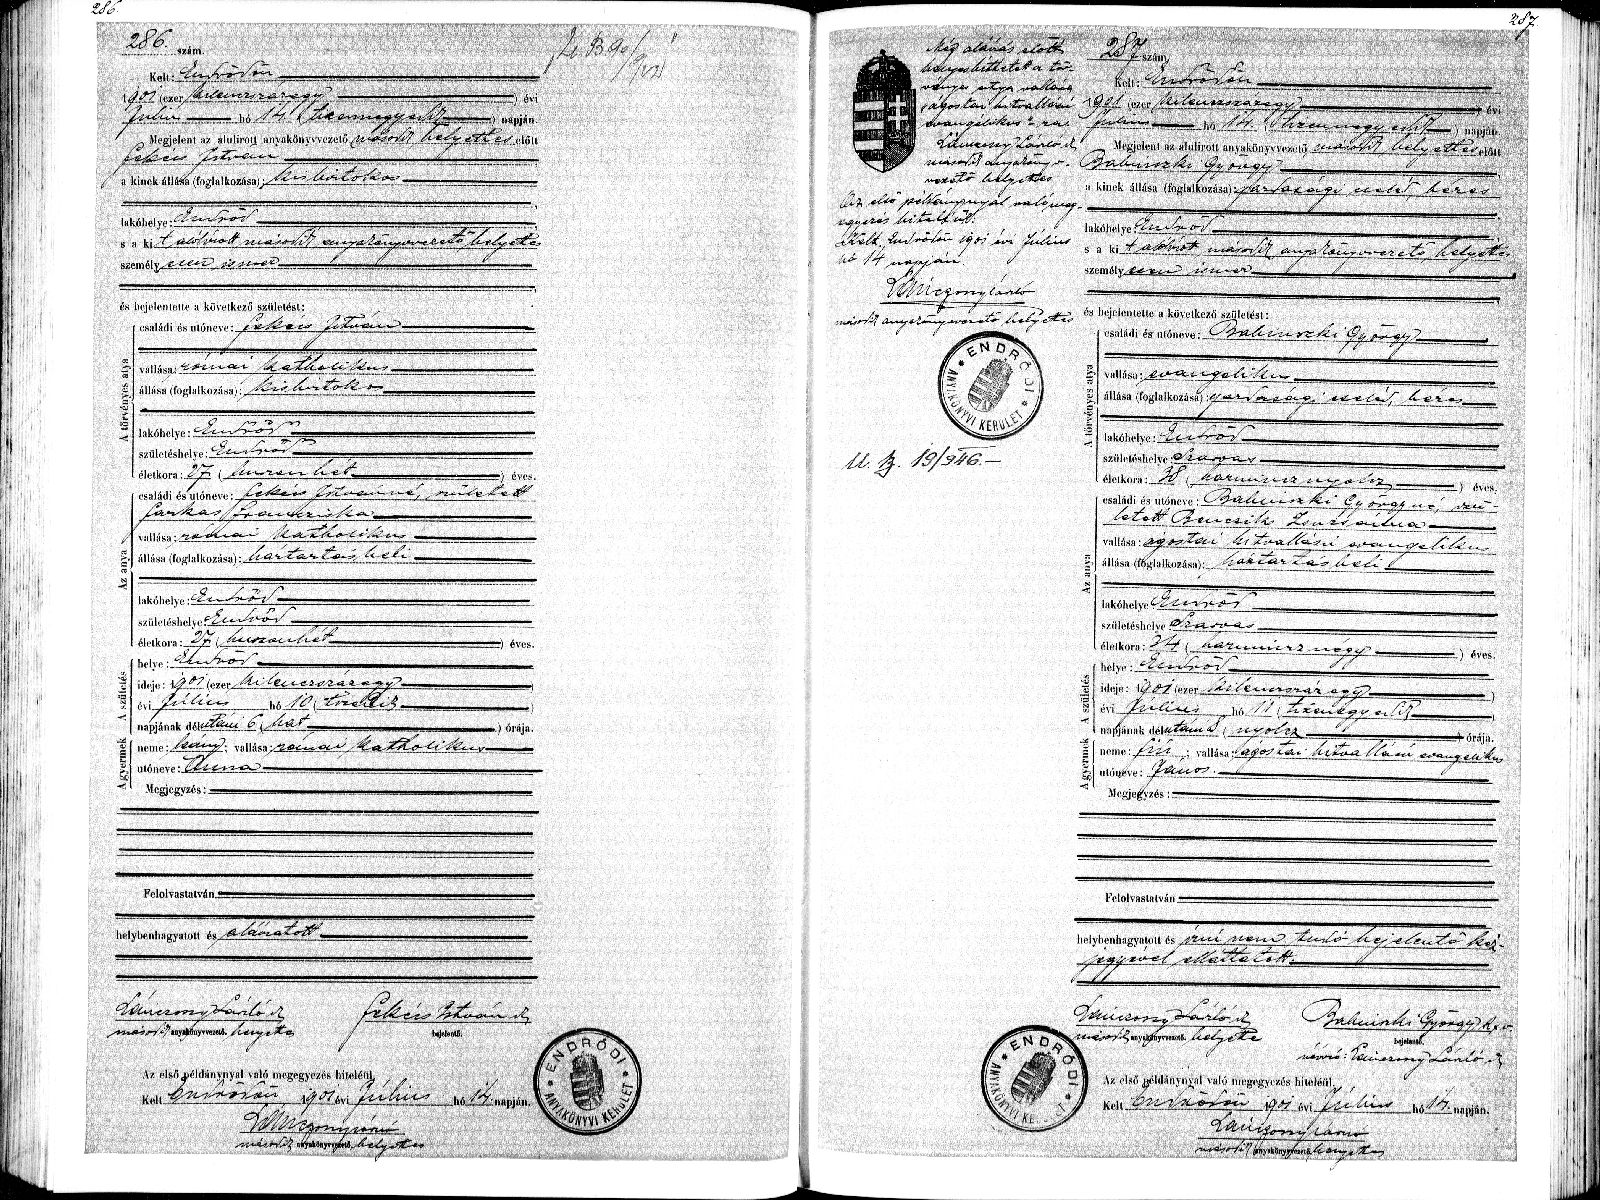 286.
286. szám.
Kelt: Endrődön
1901 (ezer kilenczszázegy) évi
Julius hó 14. (tizennegyedik) napján.
Megjelent az alulirott anyakönyvvezető második helyettes előtt
Fekécs István
a kinek állása (foglalkozása): kisbirtokos
lakóhelye: Endrőd
s a kit alólirott második anyakönyvvezető helyettes
személyesen ismer
és bejelentette a következő születést:
A törvényes atya
családi és utóneve: Fekécs István
vallása: római katholikus
állása (foglalkozása): kisbirtokos
lakóhelye: Endrőd
születéshelye: Endrőd
életkora: 27 (huszonhét) éves.
Az anya
családi és utóneve: Fekécs Istvánné, született
Farkas Franciska
vallása: római katholikus
állása (foglalkozása): háztartásbeli
lakóhelye: Endrőd
születéshelye: Endrőd
életkora: 27 (huszonhét) éves.
A születés
helye: Endrőd
ideje: 1901 (ezer kilenczszázegy)
évi Julius hó 10 (tizedik)
napjának délutáni 6 (hat) órája.
A gyermek
neme: leány; vallása: római katholikus
utóneve: Anna
Megjegyzés:
Felolvastatván,
helybenhagyatott és aláiratott
Lánczony László s.k.
második anyakönyvvezető helyettes
Fekécs István s.k.
bejelentő.
Az első példánynyal való megegyezés hiteléül,
Kelt Endrődön, 1901 évi Julius hó 14. napján.
Lánczony László
második anyakönyvvezető helyettes
ENDRŐDI ANYAKÖNYVI KERÜLET
287
287 szám,
Kelt: Endrődön
1901 (ezer kilenczszázegy) évi
Julius hó 14. (tizennegyedik) napján.
Megjelent az alulirott anyakönyvvezető második helyettes előtt
Babinszki György
a kinek állása (foglalkozása): gazdasági cseléd, béres
lakóhelye: Endrőd
s a kit alólirott második anyakönyvvezető helyettes
személyesen ismer
és bejelentette a következő születést:
A törvényes atya
családi és utóneve: Babinszki György
vallása: evangelikus
állása (foglalkozása): gazdasági cseléd, béres
lakóhelye: Endrőd
születéshelye Szarvas
életkora: 38 (harmincznyolcz) éves.
Az anya
családi és utóneve: Babinszki Györgyné, szü-
letett Bencsik Zsuzsánna
vallása: ágostai hitvallású evangelikus
állása (foglalkozása): háztartásbeli
lakóhelye Endrőd
születéshelye Szarvas
életkora: 34 (harmincznégy) éves.
A születés
helye: Endrőd
ideje: 1901 (ezer kilenczszázegy)
évi Julius hó 11 (tizenegyedik)
napjának délutáni 8 (nyolcz) órája.
A gyermek
neme: fiú; vallása: ágostai hitvallású evangelikus
utóneve: János.
Megjegyzés:
Felolvastatván
helybenhagyatott és irni nem tudó bejelentő kéz-
jegyével elláttatott.
Lánczony László s.k.
második anyakönyvvezető helyettes
Babinszki György
bejelentő.
névíró: Lánczony László s.k.
Az első példánynyal való megegyezés hiteléül
Kelt Endrődön 1901 évi Julius hó 14. napján.
Lánczony László
második anyakönyvvezető helyettes
Még aláírás előtt
helyesbíttetett a tör-
vényes atya vallása
ágostai hitvallású
evangelikus"-ra.
Lánczony László s.k.
második anyakönyv-
vezető helyettes
Az első példánynyal való meg-
egyezés hiteléül.
Kelt, Endrődön 1901 évi Július
hó 14 napján
Lánczony László
második anyakönyvvezető helyettes
ENDRŐDI ANYAKÖNYVI KERÜLET
U. B. 19/946.
ENDRŐDI ANYAKÖNYVI KERÜLET